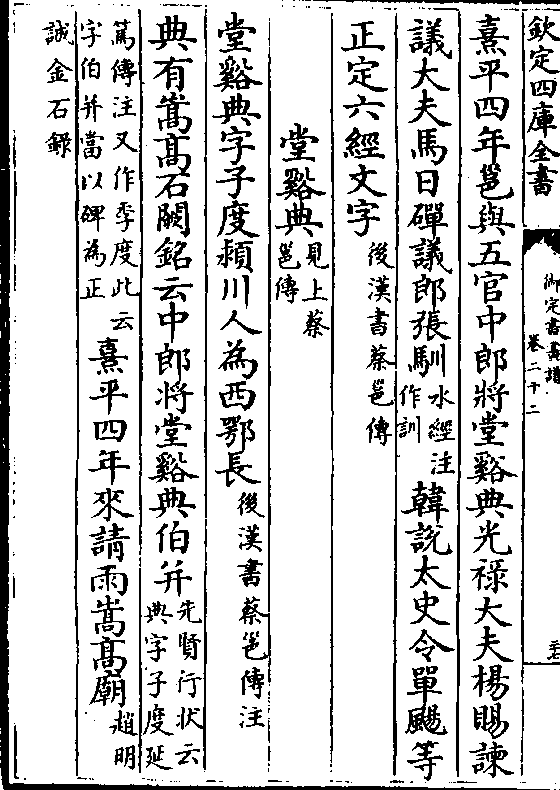 欽定四庫全書
御定書畫譜
卷二十二
熹平四年邕與五官中郎將堂谿典光祿大夫楊賜諫
議大夫馬日磾議郎張馴水經注作訓韓說太史令單颺等
正定六經文字後漢書蔡邕傳
堂谿典見上蔡邕傳
堂谿典字子度潁川人為西鄂長後漢書蔡邕傳注
典有嵩髙石闕銘云中郎將堂谿典伯并先賢行狀云典字子度延
篤傳注又作季度此云字伯并當以碑為正熹平四年來請雨嵩髙廟趙明
誠金石錄